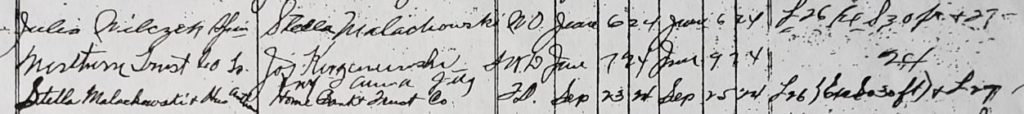 Julia Wilczek Spin Stella Malachowski W.D. June 6 24 June 6 24 L26 (Ex S30ft & 27
Northern Trust Co Tr. Jos W.D June 7 24 June 9 24 24
Stella Malachowski & Hus Home Bank & Trust Co T.D. Sep 23 24 Sep 25 24 L26 (Ex S30ft) & L27